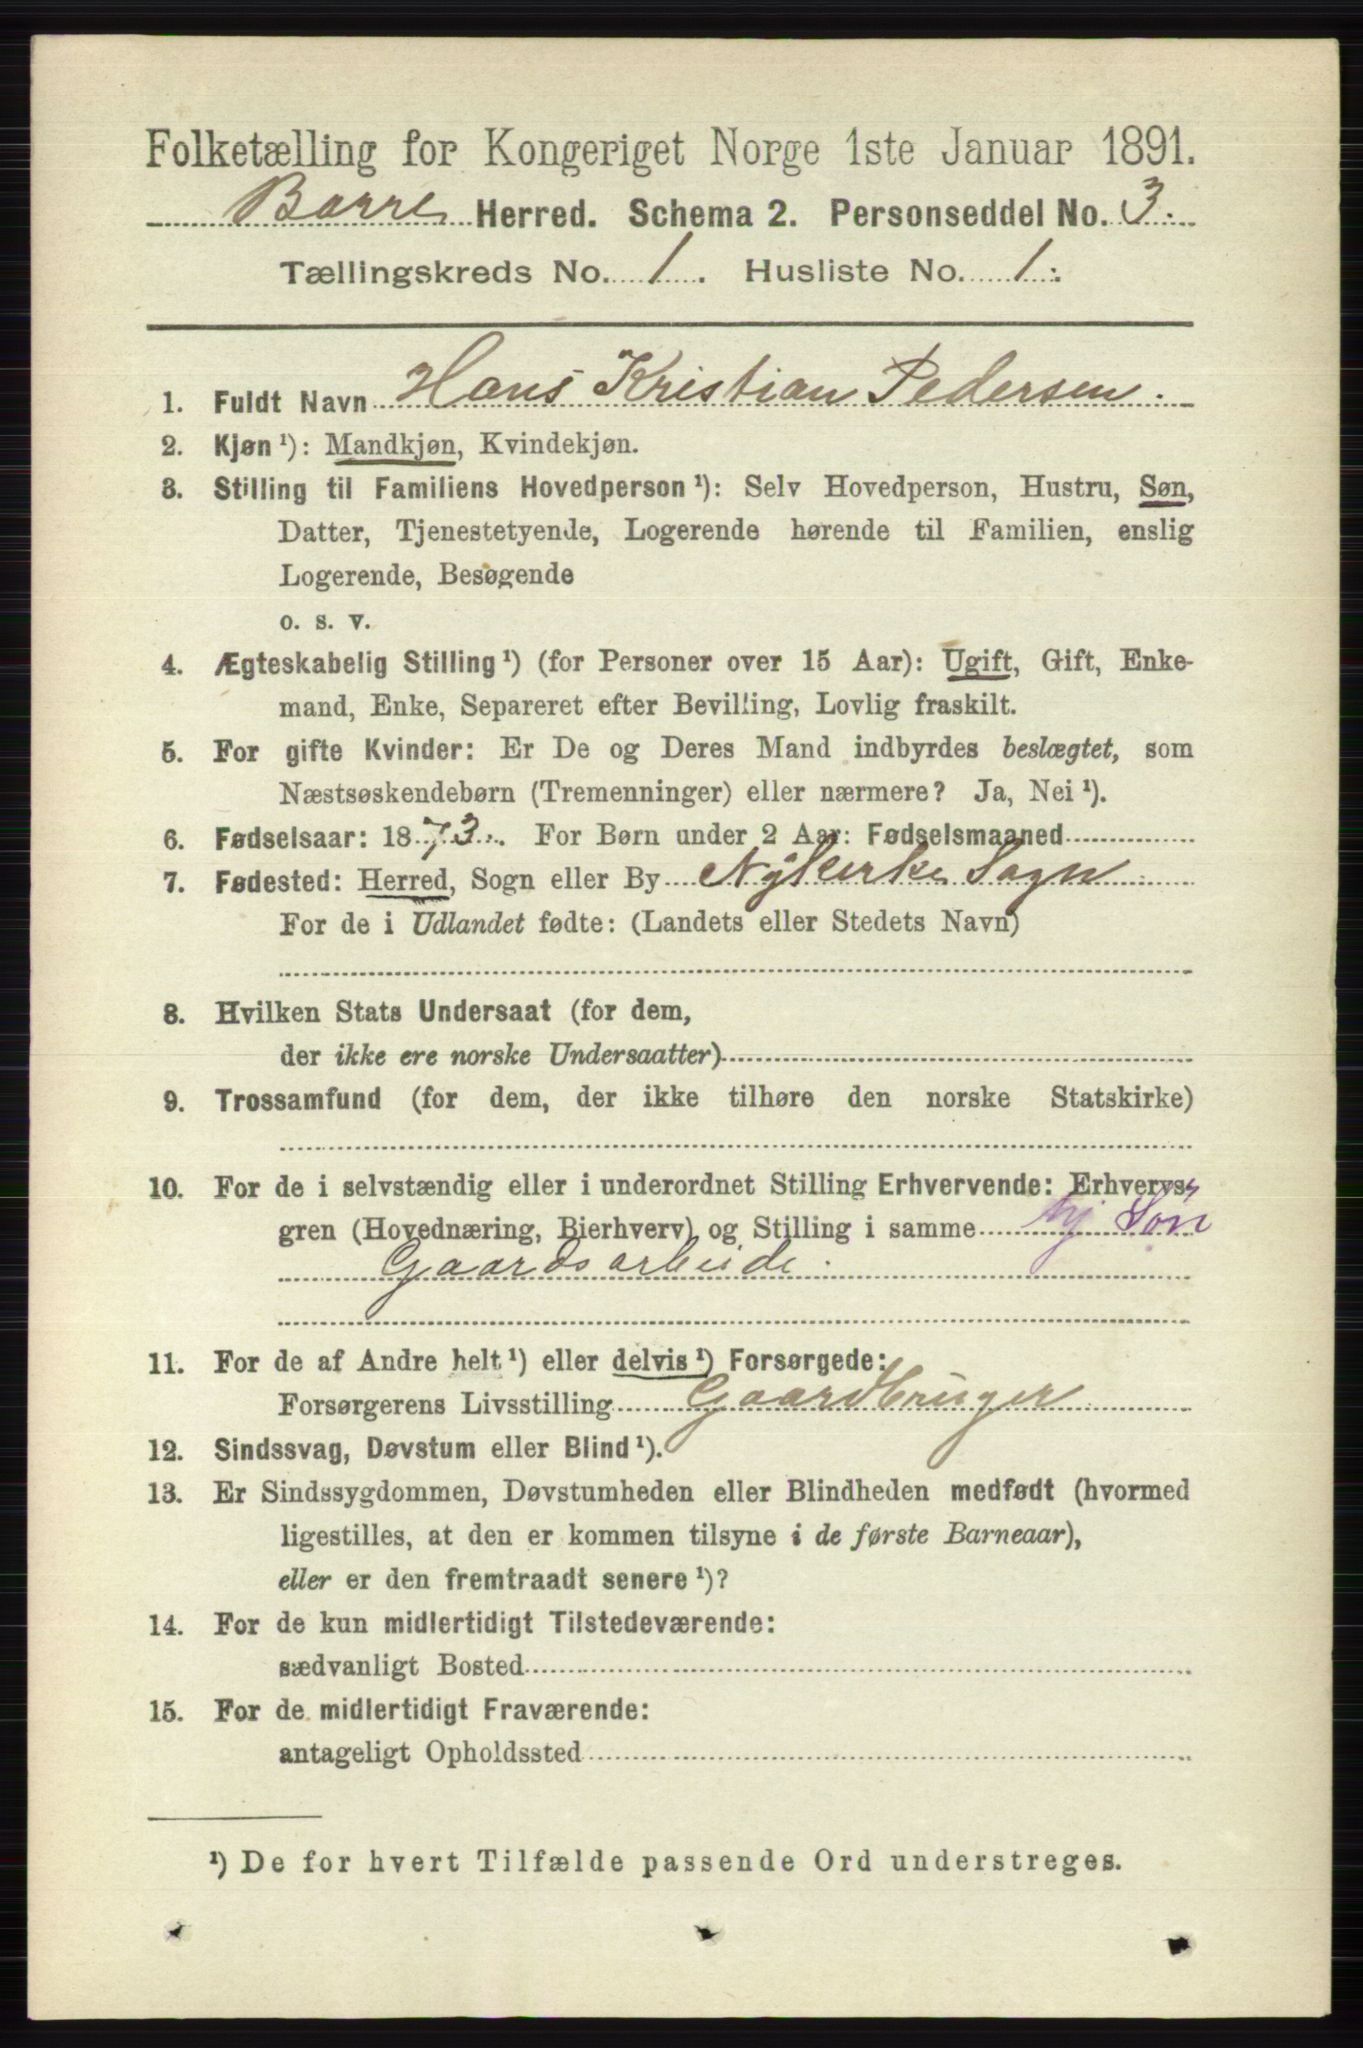 Folketælling for Kongeriget Norge 1ste Januar 1891.
Borre Herred. Schema 2. Personseddel No. 3.
Tællingskreds No. 1. Husliste No. 1.
1. Fuldt Navn Hans Kristian Pedersen.
2. Kjøn ¹): Mandkjøn, Kvindekjøn.
3. Stilling til Familiens Hovedperson ¹): Selv Hovedperson, Hustru, Søn,
Datter, Tjenestetyende, Logerende hørende til Familien, enslig
Logerende, Besøgende
o. s. v.
4. Ægteskabelig Stilling ¹) (for Personer over 15 Aar): Ugift, Gift, Enke-
mand, Enke, Separeret efter Bevilling, Lovlig fraskilt.
5. For gifte Kvinder: Er De og Deres Mand indbyrdes beslægtet, som
Næstsøskendebørn (Tremenninger) eller nærmere? Ja, Nei ¹).
6. Fødselsaar: 1873. For Børn under 2 Aar: Fødselsmaaned
7. Fødested: Herred, Sogn eller By Nykirke Sogn
For de i Udlandet fødte: (Landets eller Stedets Navn)
8. Hvilken Stats Undersaat (for dem,
der ikke ere norske Undersaatter)
9. Trossamfund (for dem, der ikke tilhøre den norske Statskirke)
10. For de i selvstændig eller i underordnet Stilling Erhvervende: Erhvervs-
gren (Hovednæring, Bierhverv) og Stilling i samme hj Søn
Gaardsarbeide.
11. For de af Andre helt ¹) eller delvis ¹) Forsørgede:
Forsørgerens Livsstilling Gaardbruger
12. Sindssvag, Døvstum eller Blind ¹).
13. Er Sindssygdommen, Døvstumheden eller Blindheden medfødt (hvormed
ligestilles, at den er kommen tilsyne i de første Barneaar),
eller er den fremtraadt senere ¹)?
14. For de kun midlertidigt Tilstedeværende:
sædvanligt Bosted
15. For de midlertidigt Fraværende:
antageligt Opholdssted
¹) De for hvert Tilfælde passende Ord understreges.